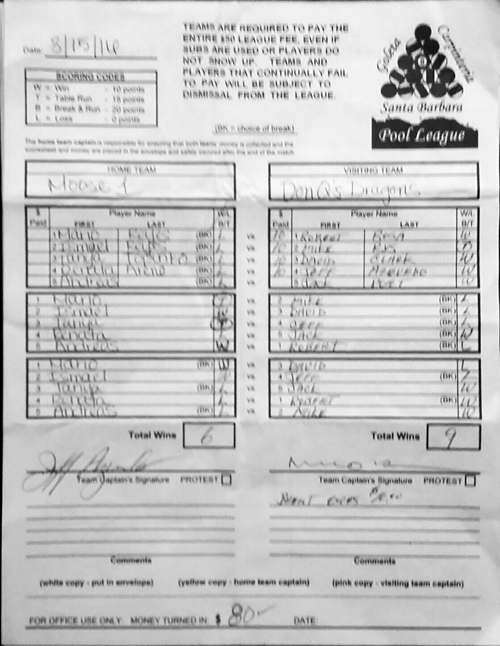 TEAMS ARE REQUIRED TO PAY THE
ENTIRE $50 LEAGUE FEE, EVEN IF
SUBS ARE USED OR PLAYERS DO
NOT SHOW UP. TEAMS AND
PLAYERS THAT CONTINUALLY FAIL
TO PAY WILL BE SUBJECT TO
DISMISSAL FROM THE LEAGUE.
Date: 8/15/16
SCORING CODES
W = Win - 10 points
T = Table Run - 15 points
B = Break & Run - 20 points
L = Loss - 0 points
(BK = choice of break)
Goleta Carpinteria
Santa Barbara
Pool League
The home team captain is responsible for ensuring that both teams' money is collected and the
scoresheet and money are placed in the envelope and safely secured after the end of the match
HOME TEAM VISITING TEAM
Moose 1 Don Q's Dragons
$ Paid Player Name FIRST LAST W/L B/T
$ Paid Player Name FIRST LAST W/L B/T
1 Mario L vs 10 1 Robert W
2 Ismael L vs 10 2 Mike
3 Tanya L vs 10 3 David Clark W
4 Renata L vs 10 4 Jeff Acevedo W
5 Andreas L vs 5 Jack W
1 Mario vs 2 Mike (BK) L
2 Ismael W vs 3 David (BK) L
3 Tanya vs 4 Jeff (BK) L
4 Renata L vs 5 Jack (BK) W
5 Andreas W vs 1 Robert (BK) L
1 Mario (BK) W vs 3 David L
2 Ismael vs 4 Jeff (BK) L
3 Tanya (BK) L vs 5 Jack W
4 Renata L vs 1 Robert (BK) W
5 Andreas (BK) L vs 2 Mike W
Total Wins 6 Total Wins 9
Team Captain's Signature PROTEST
Team Captain's Signature PROTEST
Comments Comments
(white copy - put in envelope) (yellow copy - home team captain) (pink copy - visiting team captain)
FOR OFFICE USE ONLY: MONEY TURNED IN: $ 80 DATE